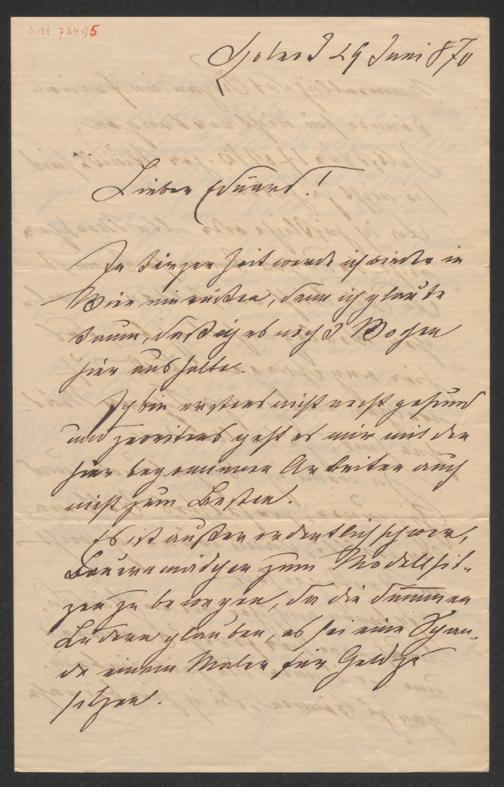 J.N. 73495
29 Juni 870
Lieber Eduard!
In kurzer Zeit werde ich wieder in
Wien einrücken, denn ich glaube
kaum, daß ich es noch 3 Wochen
hier aushalte.
Ich bin erstens nicht recht gesund
und zweitens geht es mir mit den
hier begonnenen Arbeiten auch
nicht zum Besten.
Es ist außerordentlich schwer,
Bauernmädchen zum Modellsit-
zen zu bewegen, da die dummen
Ludern glauben, es sei eine Schan-
de einem Maler für Geld zu
sitzen.